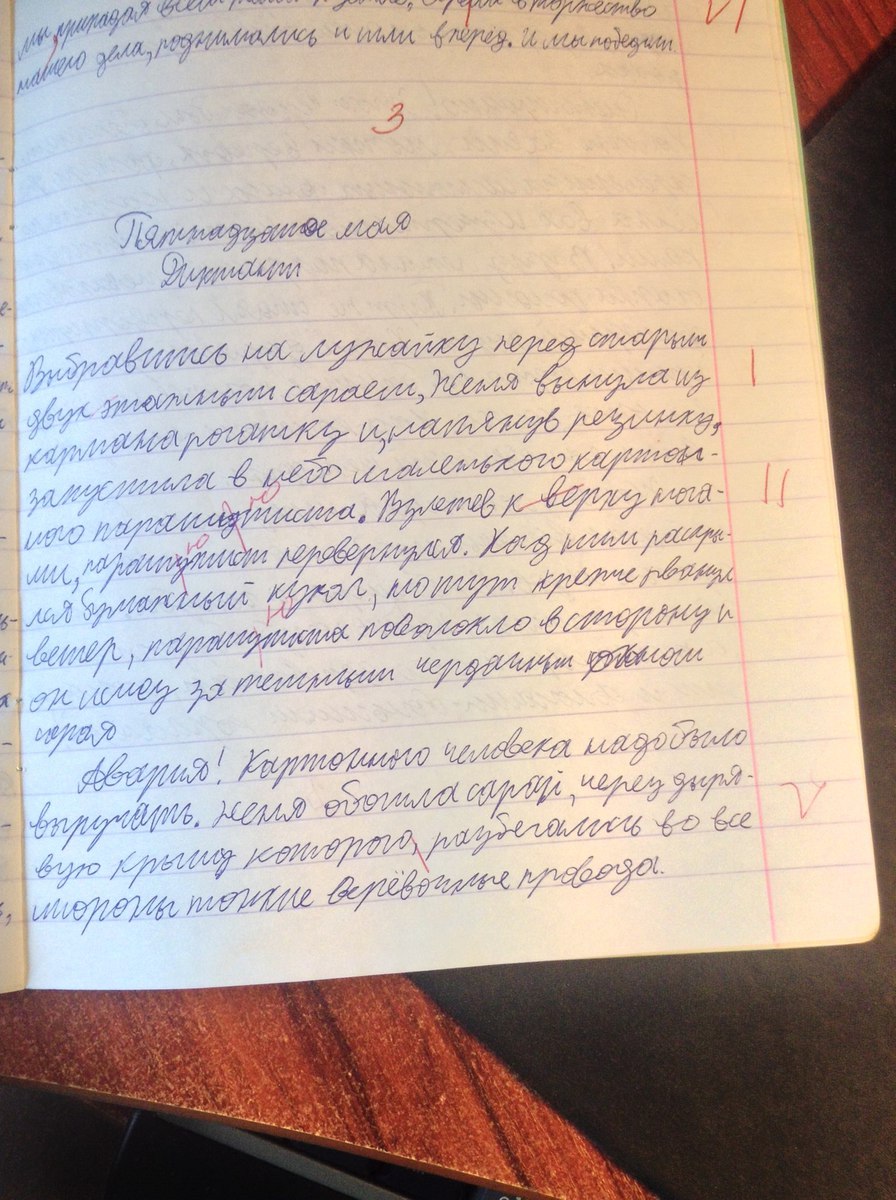 мы, припадая всем телом к земле,
нашего дела, поднимались и шли вперёд. И мы победили.
3
VI
Пятнадцатое мая
Диктант
Выбравшись на лужайку перед старым
двух этажным сараем, Женя вынула из
I
кармана рогатку и, натянув резинку,
запустила в небо маленького картон-
ного парашутиста. Взлетев к верху нога-
II
ю
ми, парашутист перевернулся. Над ним раскры-
ю
лся бумажный купол, но тут крепче рванул
ветер, парашутиста поволокло в сторону и
ю
он исчез за тёмным чердачным окном
сарая
Авария! Картонного человека надо было
выручать. Женя обошла сарай, через дыря-
V
вую крышу которого, разбегались во все
стороны тонкие верёвочные провода.